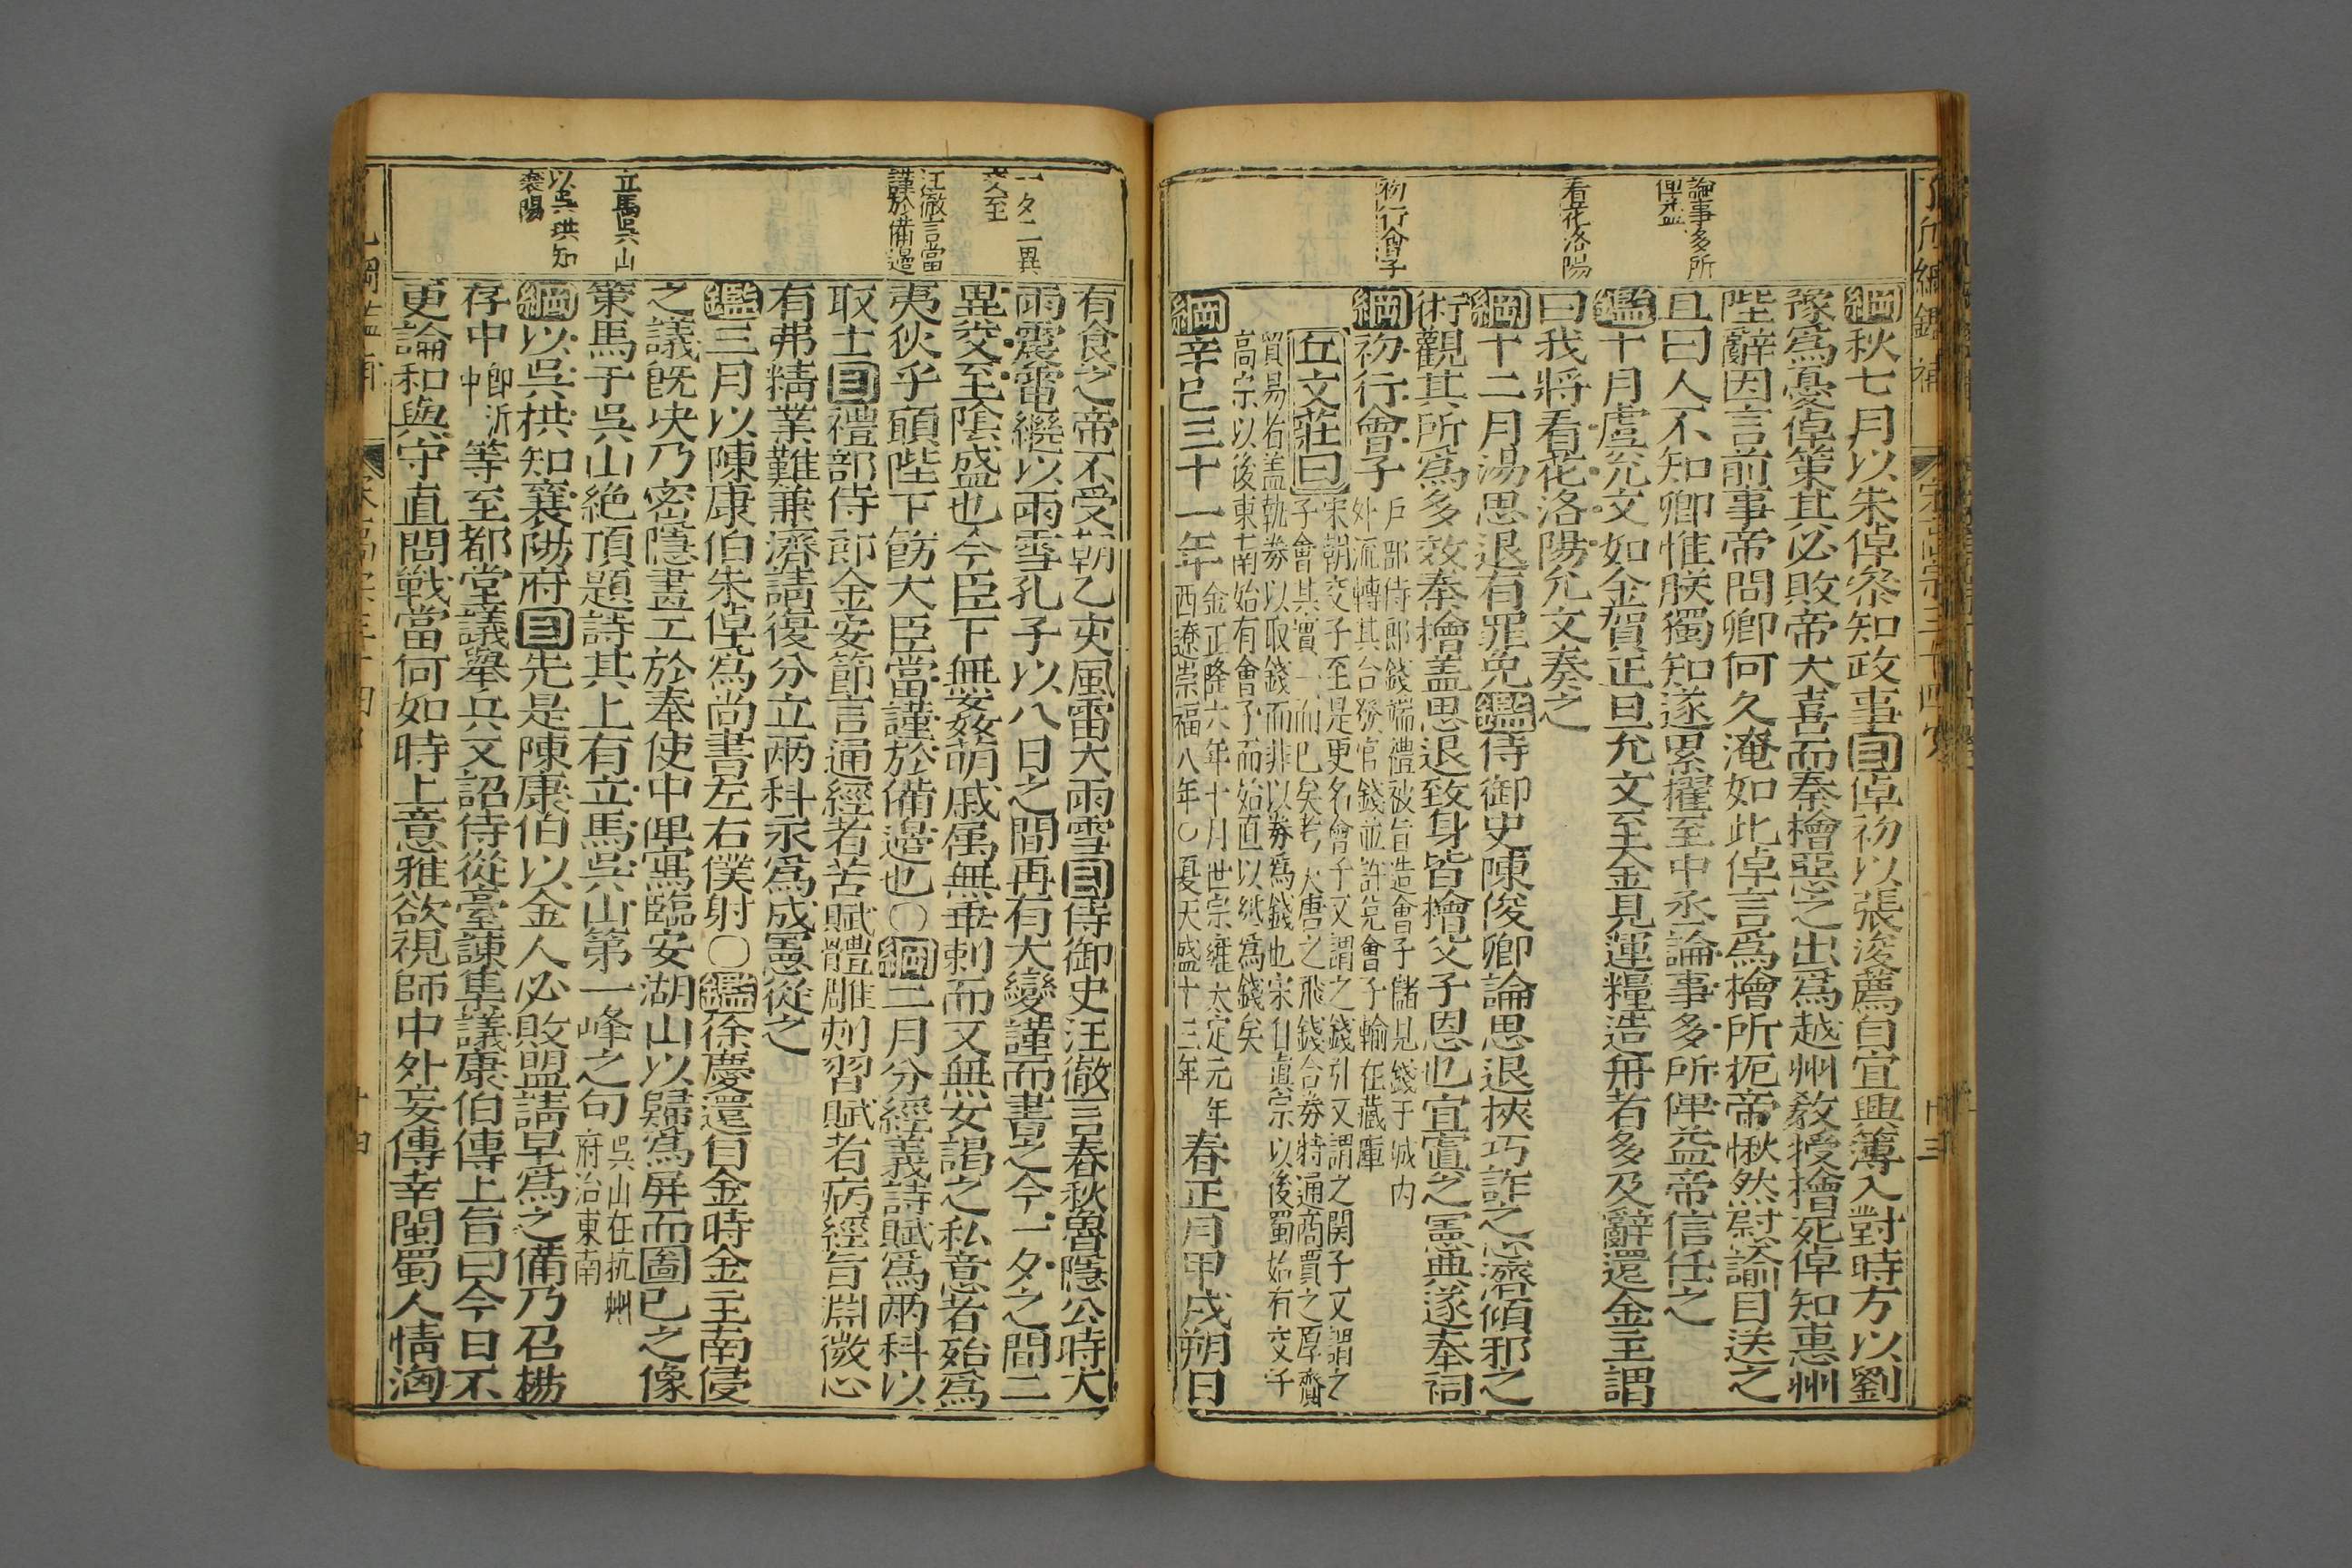 論事多所
俾益
看花洛陽
初行會子
綱秋七月以朱倬參知政事目倬初以張浚薦自宜興簿入對時方以劉
豫爲憂倬策其必敗帝大喜而秦檜惡之出爲越州敎授檜死倬知惠州
陛辭因言前事帝問卿何久淹如此倬言爲檜所扼帝愀然慰諭目送之
且曰人不知卿惟朕獨知遂累擢至中丞論事多所俾益帝信任之
鑑十月虞允文如金賀正旦允文至金見運糧造舟者多及辭還金主謂
曰我將看花洛陽允文奏之
綱十二月湯思退有罪免鑑侍御史陳俊卿論思退挾巧詐之心濟傾邪之
術觀其所爲多效秦檜盖思退致身皆檜父子恩也宜寘之憲典遂奉祠
綱初行會子
戶部侍郎錢端禮被旨造會子儲見錢于城内
外流轉其合發官錢並許兌會子輸在藏庫
丘文莊曰
宋朝交子至是更名會子又謂之錢引又謂之関子又謂之
子會其實一而已矣考大唐之飛錢合券特通商賈之厚齎
貿易者盖執券以取錢而非以券爲錢也宋自眞宗以後蜀始有交子
高宗以後東南始有會子而始直以紙爲錢矣
綱辛巳三十一年
金正隆六年十月世宗雍大定元年
西遼崇福八年○夏天盛十三年
春正月甲戌朔日
一夕二異
交至
汪徹言當
謹於備邉
立馬吳山
以吳珙知
襄陽
有食之帝不受朝乙亥風雷大雨雪目侍御史汪徹言春秋魯隱公時大
雨震電繼以雨雪孔子以八日之間再有大變謹而書之今一夕之間二
異交至陰盛也今臣下無姦萌戚属無乖刺而又無女謁之私意者殆爲
夷狄乎願陛下飭大臣當謹於備邉也○綱二月分經義詩賦爲兩科以
取士目禮部侍郎金安節言通經者苦賦體雕刻習賦者病經旨淵微心
有弗精業難兼濟請復分立兩科永爲成憲從之
鑑三月以陳康伯朱倬爲尚書左右僕射○鑑徐慶還自金時金主南侵
之議旣决乃密隱畫工於奉使中俾寫臨安湖山以歸爲屏而圖已之像
策馬于吳山絶頂題詩其上有立馬吳山第一峰之句
吳山在杭州
府治東南
綱以吳栱知襄陽府目先是陳康伯以金人必敗盟請早爲之備乃召楊
存中
卽沂
中
等至都堂議舉兵又詔侍從臺諫集議康伯傳上旨曰今日不
更論和與守直問戰當何如時上意雅欲視師中外妄傳幸閩蜀人情洶